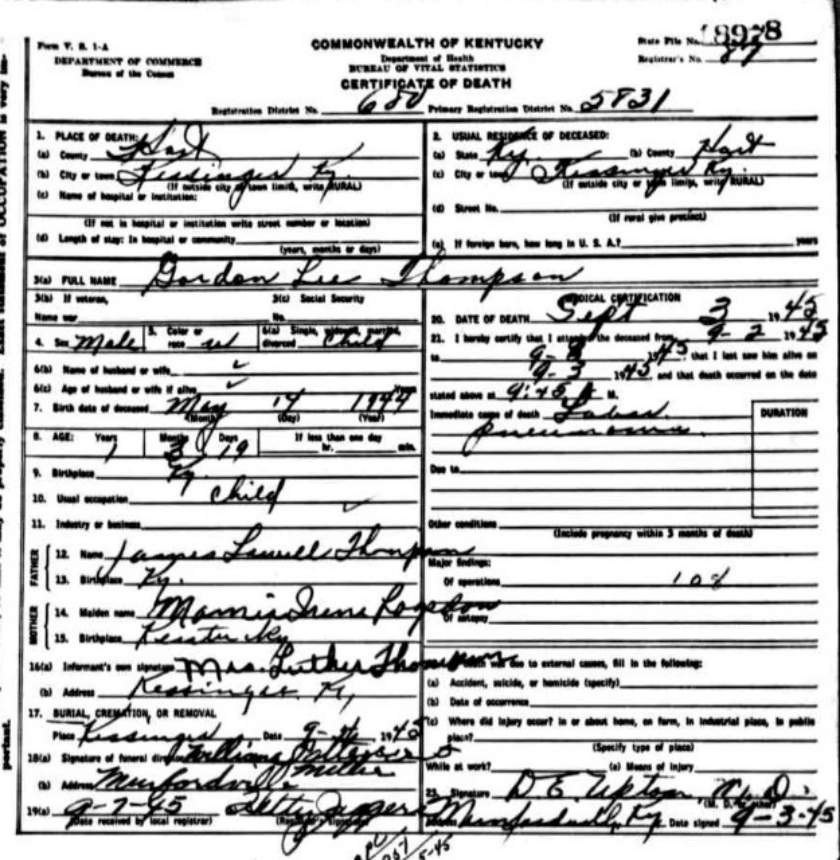 Form V. S. 1-A
DEPARTMENT OF COMMERCE
Bureau of the Census
COMMONWEALTH OF KENTUCKY
Department of Health
BUREAU OF VITAL STATISTICS
CERTIFICATE OF DEATH
State File No. 18978
Registrar's No. 87
Registration District No. 680 Primary Registration District No. 5831
1. PLACE OF DEATH:
(a) County Hart
(b) City or town Kessinger Ky.
(If outside city or town limits, write RURAL)
(c) Name of hospital or institution:
(If not in hospital or institution write street number or location)
(d) Length of stay: In hospital or community
(years, months or days)
2. USUAL RESIDENCE OF DECEASED:
(a) State Ky. (b) County Hart
(c) City or town Kessinger Ky.
(If outside city or town limits, write RURAL)
(d) Street No.
(If rural give precinct)
(e) If foreign born, how long in U. S. A.? years
3(a) FULL NAME Gordon Lee Thompson
3(b) If veteran, 3(c) Social Security
Name war No.
4. Sex Male 5. Color or race w 6(a) Single, widowed, married, divorced Child
6(b) Name of husband or wife
6(c) Age of husband or wife if alive Years
7. Birth date of deceased May 14 1944
(Month) (Day) (Year)
8. AGE: Years Months Days If less than one day
1 3 19 hr. min.
9. Birthplace Ky.
10. Usual occupation Child
11. Industry or business
FATHER
12. Name James Lowell Thompson
13. Birthplace Ky.
MOTHER
14. Maiden name Mamie Irene Logsdon
15. Birthplace
16(a) Informant's own signature Mrs. Luther Thompson
(b) Address Kessinger, Ky
17. BURIAL, CREMATION, OR REMOVAL
Place Kessinger Date 9-4 1945
18(a) Signature of funeral director
(b) Address Munfordville
19(a) 9-7-45 Betty Jaggers
(Date received by local registrar)
MEDICAL CERTIFICATION
20. DATE OF DEATH Sept 3 1945
21. I hereby certify that I attended the deceased from 9-2 1945
to 9-3 1945, that I last saw him alive on
9-3 1945 and that death occurred on the date
stated above at 9:45 M.
Immediate cause of death Lobar
pneumonia.
DURATION
Due to
Other conditions
(Include pregnancy within 3 months of death)
Major findings:
Of operations 108
Of autopsy
was due to external causes, fill in the following:
(a) Accident, suicide, or homicide (specify)
(b) Date of occurrence
(c) Where did injury occur? in or about home, on farm, in industrial place, in public
place?
(Specify type of place)
While at work? (e) Means of injury
23. Signature D. E. Upton M. D.
Munfordville, Ky. Date signed 9-3-45